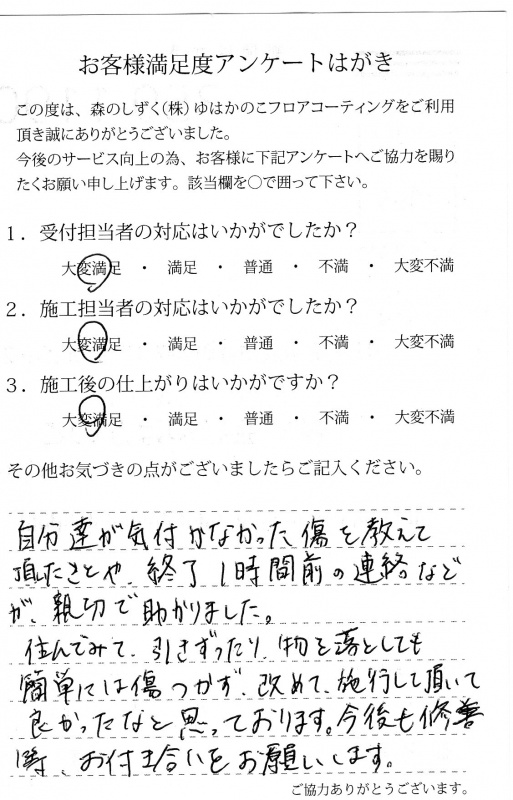 お客様満足度アンケートはがき
この度は、森のしずく(株)ゆはかのこフロアコーティングをご利用
頂き誠にありがとうございました。
今後のサービス向上の為、お客様に下記アンケートへご協力を賜り
たくお願い申し上げます。該当欄を〇で囲って下さい。
1．受付担当者の対応はいかがでしたか？
大変満足 ・ 満足 ・ 普通 ・ 不満 ・ 大変不満
2．施工担当者の対応はいかがでしたか？
大変満足 ・ 満足 ・ 普通 ・ 不満 ・ 大変不満
3．施工後の仕上がりはいかがですか？
大変満足 ・ 満足 ・ 普通 ・ 不満 ・ 大変不満
その他お気づきの点がございましたらご記入ください。
自分達が気付かなかった傷を教えて
頂たことや、終了1時間前の連絡など
が、親切で助かりました。
住んでみて、引きずったり、物を落としても
簡単には傷つかず、改めて、施行して頂いて
良かったなと思っております。今後も修善
等、お付き合いをお願いします。
ご協力ありがとうございます。